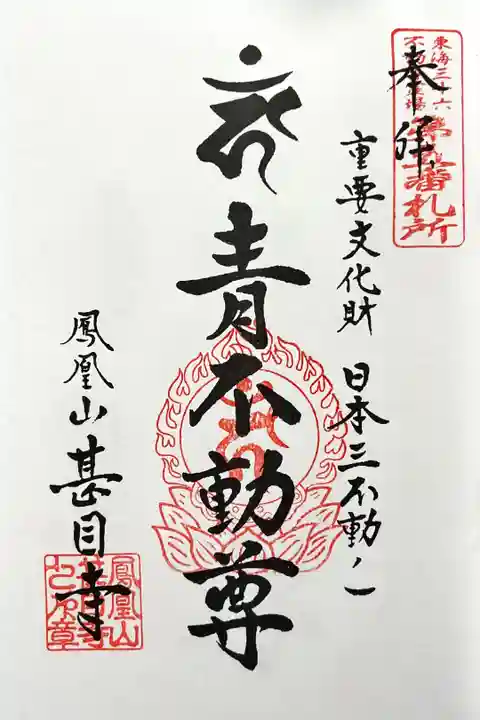 奉拝
東海三十六
不動尊霊場
番札所
重要文化財 日本三不動ノ一
青不動尊
鳳凰山甚目寺
鳳凰山